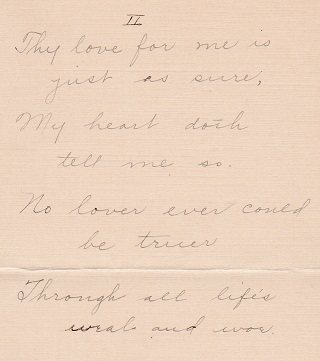 II
Thy love for me is
just as sure,
My heart doth
tell me so.
No lover ever could
be truer
Through all life's
weal and woe.